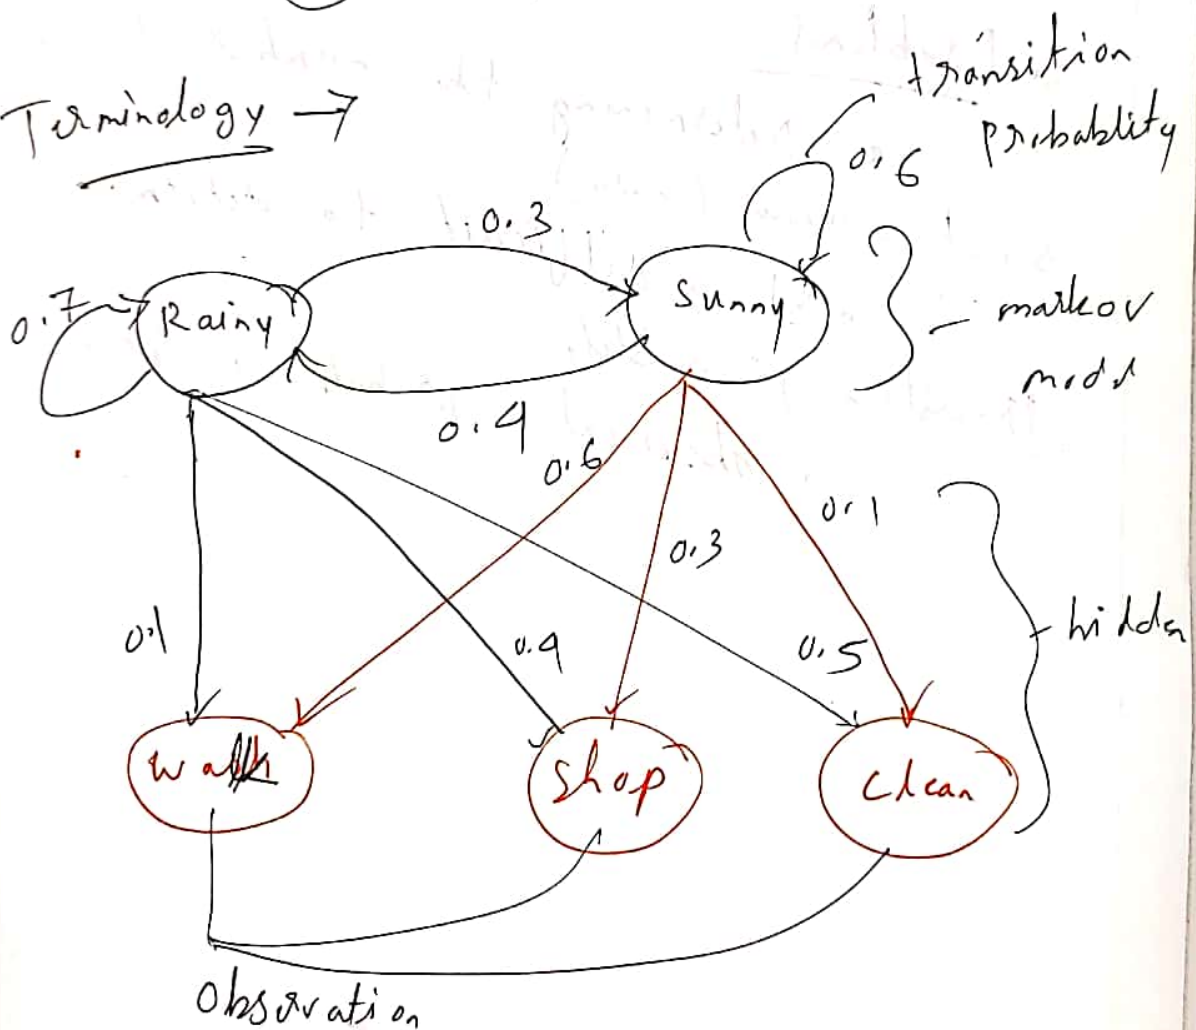 Terminology →
transition
probablity
0.6
0.3
0.7
Rainy
Sunny
markov
modl
0.4
0.6
0.1
0.3
0.1
0.4
0.5
hidden
walk
shop
clean
Observation